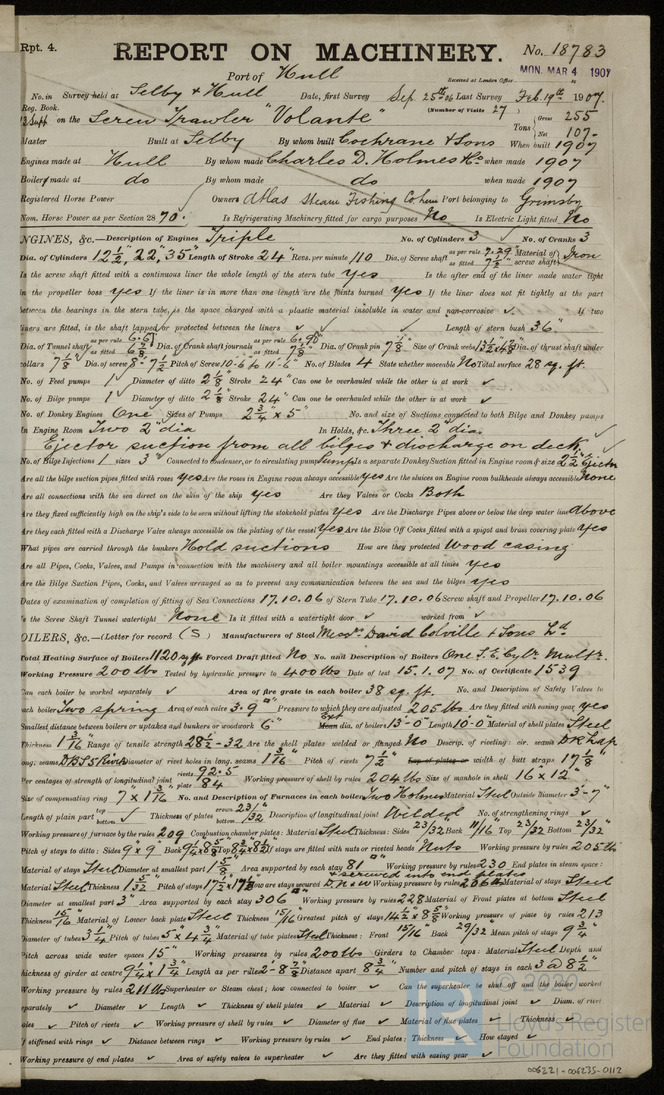 Rpt. 4.
REPORT ON MACHINERY. No. 18783
Port of Hull
Received at London Office MON. MAR 4 1907
No. in Survey held at Selby & Hull Date, first Survey Sep. 25th 06 Last Survey Feb. 19th 1907.
Reg. Book. (Number of Visits 27
13 Supp on the Screw Trawler "Volante" Tons Gross 255 Net 107
Master Built at Selby By whom built Cochrane & Sons When built 1907
Engines made at Hull By whom made Charles D. Holmes & Co when made 1907
Boilers made at do By whom made do when made 1907
Registered Horse Power Owners Atlas Steam Fishing Co Port belonging to Grimsby
Nom. Horse Power as per Section 28 70. Is Refrigerating Machinery fitted for cargo purposes No Is Electric Light fitted No
NGINES, &c.—Description of Engines Triple No. of Cylinders 3 No. of Cranks 3
Dia. of Cylinders 12 1/2", 22", 35" Length of Stroke 24" Revs. per minute 110 Dia. of Screw shaft as per rule 7.29" as fitted 7 1/2" Material of screw shaft Iron
Is the screw shaft fitted with a continuous liner the whole length of the stern tube yes Is the after end of the liner made water tight
in the propeller boss yes If the liner is in more than one length are the joints burned yes If the liner does not fit tightly at the part
between the bearings in the stern tube, is the space charged with a plastic material insoluble in water and non-corrosive ✓ If two
liners are fitted, is the shaft lapped or protected between the liners ✓ Length of stern bush 36"
Dia. of Tunnel shaft as per rule 6.63 as fitted Dia. of Crank shaft journals as per rule 6.96 as fitted 7 1/8" Dia. of Crank pin 7 1/8" Size of Crank webs Dia. of thrust shaft under
collars 7 1/8" Dia. of screw 8"-7 1/2 Pitch of Screw 10-6 to 11-6" No. of Blades 4 State whether moveable No Total surface 28 sq. ft.
No. of Feed pumps 1 Diameter of ditto 2 1/8" Stroke 24" Can one be overhauled while the other is at work ✓
No. of Bilge pumps 1 Diameter of ditto 2 1/8" Stroke 24" Can one be overhauled while the other is at work ✓
No. of Donkey Engines One Sizes of Pumps 2 3/4" x 5" No. and size of Suctions connected to both Bilge and Donkey pumps
In Engine Room Two 2" dia In Holds, &c. Three 2" dia.
Ejector suction from all bilges & discharge on deck
No. of Bilge Injections 1 sizes 3" Connected to condenser, or to circulating pump Is a separate Donkey Suction fitted in Engine room & size 2 1/2" Ejector
Are all the bilge suction pipes fitted with roses yes Are the roses in Engine room always accessible yes Are the sluices on Engine room bulkheads always accessible None
Are all connections with the sea direct on the skin of the ship yes Are they Valves or Cocks Both
Are they fixed sufficiently high on the ship's side to be seen without lifting the stokehold plates yes Are the Discharge Pipes above or below the deep water line above
Are they each fitted with a Discharge Valve always accessible on the plating of the vessel yes Are the Blow Off Cocks fitted with a spigot and brass covering plate yes
What pipes are carried through the bunkers Hold suctions How are they protected Wood casing
Are all Pipes, Cocks, Valves, and Pumps in connection with the machinery and all boiler mountings accessible at all times yes
Are the Bilge Suction Pipes, Cocks, and Valves arranged so as to prevent any communication between the sea and the bilges yes
Dates of examination of completion of fitting of Sea Connections 17.10.06 of Stern Tube 17.10.06 Screw shaft and Propeller 17.10.06
Is the Screw Shaft Tunnel watertight None Is it fitted with a watertight door ✓ worked from ✓
OILERS, &c.—(Letter for record (S) Manufacturers of Steel Messrs David Colville & Sons Ld
Total Heating Surface of Boilers 1120 sq ft Forced Draft fitted No No. and Description of Boilers One S.E. Cylr Multr.
Working Pressure 200 lbs Tested by hydraulic pressure to 400 lbs Date of test 15.1.07 No. of Certificate 1539
Can each boiler be worked separately ✓ Area of fire grate in each boiler 38 sq. ft. No. and Description of Safety Valves to
each boiler Two spring Area of each valve 3.9 Pressure to which they are adjusted 205 lbs Are they fitted with easing gear yes
Smallest distance between boilers or uptakes and bunkers or woodwork 6" Mean Ext dia. of boilers 13-0" Length 10-0" Material of shell plates Steel
Thickness 1 3/16" Range of tensile strength 28 1/2-32 Are the shell plates welded or flanged No Descrip. of riveting: cir. seams DR Lap
long. seams DBS 5 Rivs Diameter of rivet holes in long. seams 1 3/16 Pitch of rivets 7 1/2" Lap of plates or width of butt straps 17 7/8"
Per centages of strength of longitudinal joint rivets 92.5 plate 84 Working pressure of shell by rules 204 lbs Size of manhole in shell 16" x 12"
Size of compensating ring 7" x 1 3/16 No. and Description of Furnaces in each boiler Two Holmes Material Steel Outside diameter 3-7"
Length of plain part top bottom ✓ Thickness of plates crown bottom 23/32" Description of longitudinal joint Welded No. of strengthening rings ✓
Working pressure of furnace by the rules 209 Combustion chamber plates: Material Steel Thickness: Sides 23/32 Back 11/16 Top 23/32 Bottom 23/32"
Pitch of stays to ditto: Sides 9" x 9" Back Top If stays are fitted with nuts or riveted heads Nuts Working pressure by rules 205 lbs
Material of stays Steel Diameter at smallest part 1 5/8" Area supported by each stay 81 Working pressure by rules 230 End plates in steam space:
& screwed into end plates
Material Steel Thickness 1 1/32" Pitch of stays 17 1/2 x 17 How are stays secured D.N.W Working pressure by rules Material of stays Steel
Diameter at smallest part 3" Area supported by each stay 306 Working pressure by rules 228 Material of Front plates at bottom Steel
Thickness 15/16" Material of Lower back plate Steel Thickness 15/16" Greatest pitch of stays Working pressure of plate by rules 213
Diameter of tubes 3 1/4" Pitch of tubes 5" x 4 3/4" Material of tube plates Steel Thickness: Front 15/16" Back 29/32" Mean pitch of stays 9 3/4"
Pitch across wide water spaces 15" Working pressures by rules 200 lbs Girders to Chamber tops: Material Steel Depth and
thickness of girder at centre Length as per rule 2-8 Distance apart 8 3/4" Number and pitch of stays in each 3 @ 8 1/2"
Working pressure by rules 211 lb Superheater or Steam chest; how connected to boiler ✓ Can the superheater be shut off and the boiler worked
separately ✓ Diameter ✓ Length ✓ Thickness of shell plates ✓ Material ✓ Description of longitudinal joint ✓ Diam. of rivet
holes ✓ Pitch of rivets ✓ Working pressure of shell by rules ✓ Diameter of flue ✓ Material of flue plates ✓ Thickness ✓
If stiffened with rings ✓ Distance between rings ✓ Working pressure by rules ✓ End plates: Thickness ✓ How stayed ✓
Working pressure of end plates ✓ Area of safety valves to superheater ✓ Are they fitted with easing gear ✓
© 2020
Lloyd's Register
Foundation
006221-006235-0112